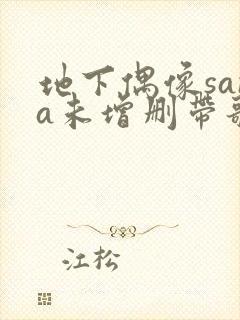 地下偶像sa
a未增删带
江松